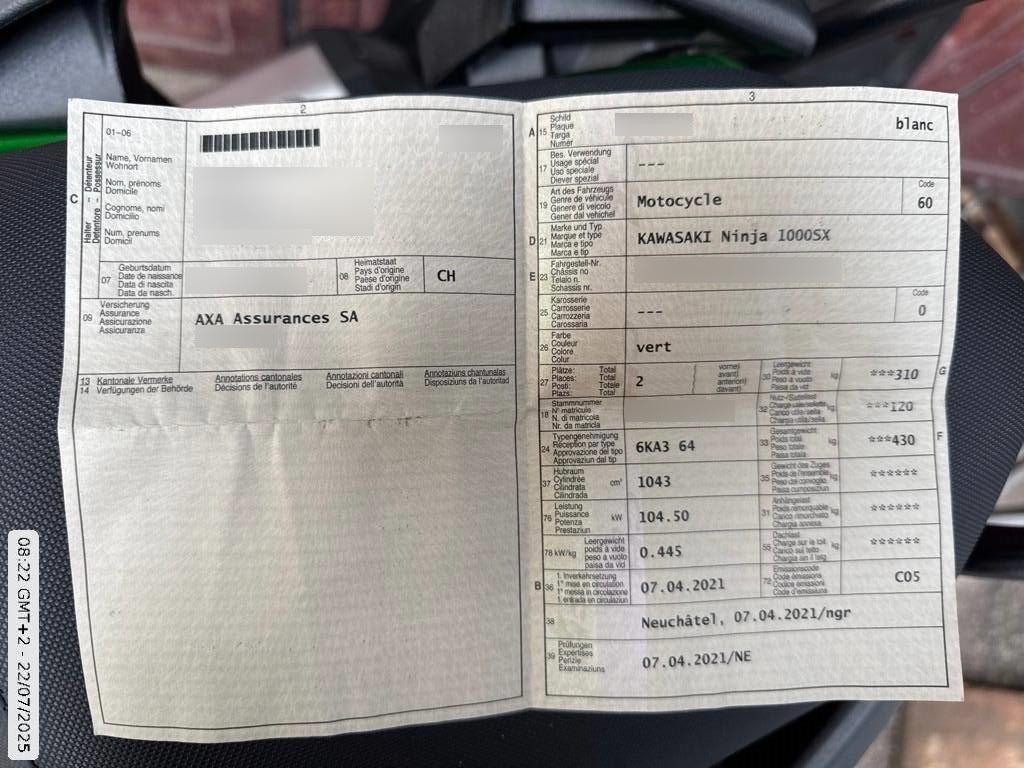 2
01-06
C
Halter - Détenteur
Detentore - Possessur
Name, Vornamen
Wohnort
Nom, prénoms
Domicile
Cognome, nomi
Domicilio
Num, prenums
Domicil
07
Geburtsdatum
Date de naissance
Data di nascita
Data da nasch.
08
Heimatstaat
Pays d'origine
Paese d'origine
Stadi d'origin
CH
09
Versicherung
Assurance
Assicurazione
Assicuranza
AXA Assurances SA
13 Kantonale Vermerke
14 Verfügungen der Behörde
Annotations cantonales
Décisions de l'autorité
Annotazioni cantonali
Decisioni dell'autorità
Annotaziuns chantunalas
Disposiziuns da l'autoritad
3
A 15
Schild
Plaque
Targa
Numer
blanc
17
Bes. Verwendung
Usage spécial
Uso speciale
Diever spezial
---
19
Art des Fahrzeugs
Genre de véhicule
Genere di veicolo
Gener dal vehichel
Motocycle
Code
60
D 21
Marke und Typ
Marque et type
Marca e tipo
Marca e tip
KAWASAKI Ninja 1000SX
E 23
Fahrgestell-Nr.
Châssis no
Telaio n.
Schassis nr.
25
Karosserie
Carrosserie
Carrozzeria
Carossaria
---
Code
0
26
Farbe
Couleur
Colore
Colur
vert
27
Plätze: Total
Places: Total
Posti: Totale
Plazs: Total
2
vorne)
avant)
anteriori)
davant)
30
Leergewicht
Poids à vide
Peso a vuoto
Paisa da vid
kg
***310
G
18
Stammnummer
N° matricule
N. di matricola
Nr. da matricla
32
Nutz-/Sattellast
Charge utile/sellette
Carico utile/sella
Chargia utila/sella
kg
***120
24
Typengenehmigung
Réception par type
Approvazione del tipo
Approvaziun dal tip
6KA3 64
33
Gesamtgewicht
Poids total
Peso totale
Paisa totala
kg
***430
F
37
Hubraum
Cylindrée
Cilindrata
Cilindrada
cm³
1043
35
Gewicht des Zuges
Poids de l'ensemble
Peso del convoglio
Paisa cumposiziun
kg
******
76
Leistung
Puissance
Potenza
Prestaziun
kW
104.50
31
Anhängelast
Poids remorquable
Carico rimorchiato
Chargia annexa
kg
******
78 kW/kg
Leergewicht
poids à vide
peso a vuoto
paisa da vid
0.445
55
Dachlast
Charge sur le toit
Carico sul tetto
Chargia sin il tetg
kg
******
B 36
1. Inverkehrsetzung
1re mise en circulation
1a messa in circolazione
1. entrada en circulaziun
07.04.2021
72
Emissionscode
Code émissions
Codice emissioni
Code d'emissiuns
C05
38
Neuchâtel, 07.04.2021/ngr
39
Prüfungen
Expertises
Perizie
Examinaziuns
07.04.2021/NE
08:22 GMT+2 - 22/07/2025